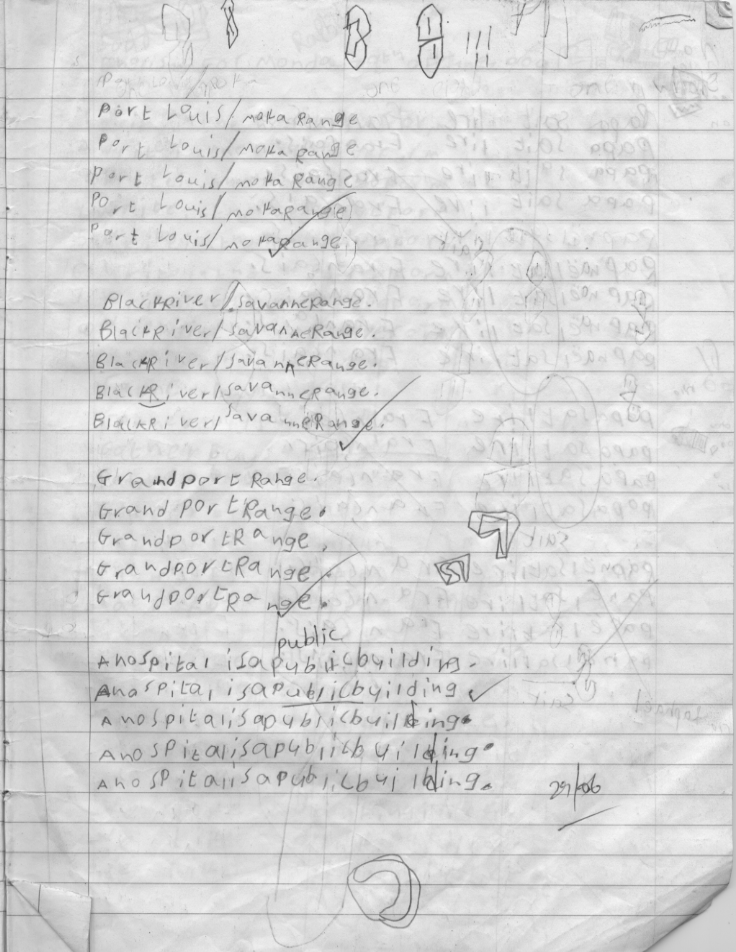 Port Louis/moka Range
Port Louis/moka range
port Louis/moka Range
Port Louis/mokaRange
Port Louis/mokaRange
BlackRiver/SavanneRange.
BlackRiver/SavanneRange.
BlackRiver/SavanneRange.
BlackRiver/SavanneRange.
BlackRiver/SavanneRange.
Grandport Range.
Grand PortRange.
GrandportRange.
GrandportRange.
GrandportRange.
public
Anospital isapublicbuilding.
Anospital isapublicbuilding.
Anospitalisapublicbuilding.
AnosPitalisapublicbuilding.
AnosPitalisapublicbuilding.